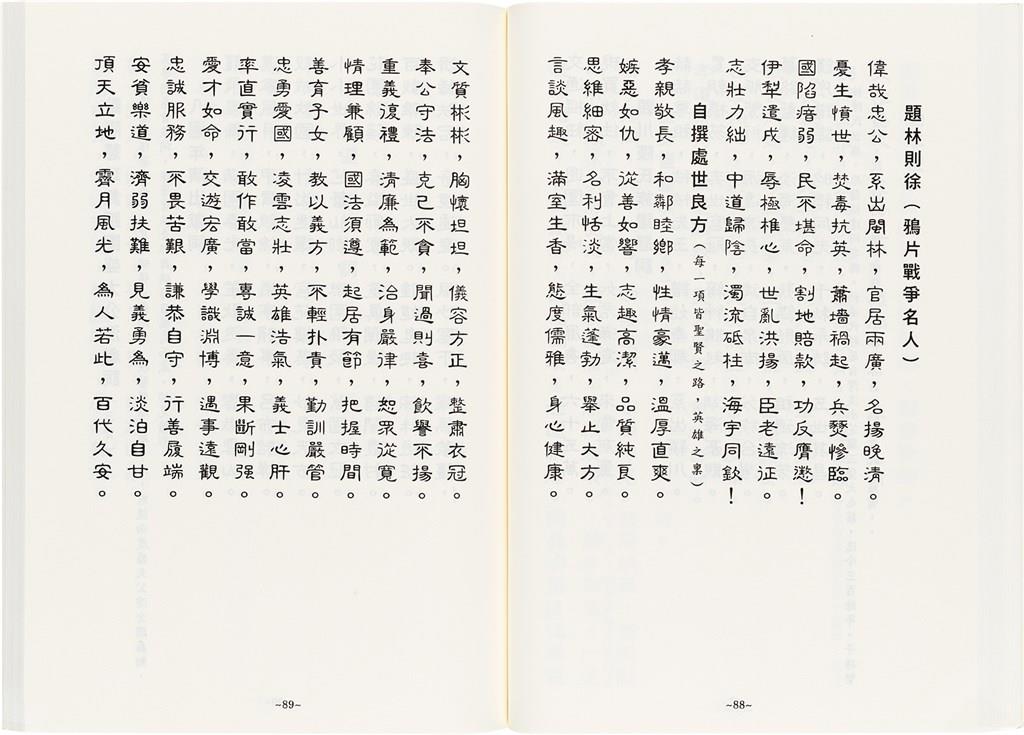 題林則徐（鴉片戰爭名人）
偉哉忠公，系出閩林，官居兩廣，名揚晚清。
憂生憤世，焚毒抗英，蕭墻禍起，兵燹慘臨。
國陷瘠弱，民不堪命，割地賠款，功反膺愆！
伊犁遣戍，辱極椎心，世亂洪揚，臣老遠征。
志壯力絀，中道歸陰，濁流砥柱，海宇同欽！
自撰處世良方（每一項皆聖賢之路，英雄之稟）
孝親敬長，和鄰睦鄉，性情豪邁，溫厚直爽。
嫉惡如仇，從善如響，志趣高潔，品質純良。
思維細密，名利恬淡，生氣蓬勃，舉止大方。
言談風趣，滿室生香，態度儒雅，身心健康。
~88~
文質彬彬，胸懷坦坦，儀容方正，整肅衣冠。
奉公守法，克己不貪，聞過則喜，飲譽不揚。
重義復禮，清廉為範，治身嚴律，恕眾從寬。
情理兼顧，國法須遵，起居有節，把握時間。
善育子女，教以義方，不輕扑責，勤訓嚴管。
忠勇愛國，凌雲志壯，英雄浩氣，義士心肝。
率直實行，敢作敢當，專誠一意，果斷剛强。
愛才如命，交遊宏廣，學識淵博，遇事遠觀。
忠誠服務，不畏苦艱，謙恭自守，行善履端。
安貧樂道，濟弱扶難，見義勇為，淡泊自甘。
頂天立地，霽月風光，為人若此，百代久安。
~89~